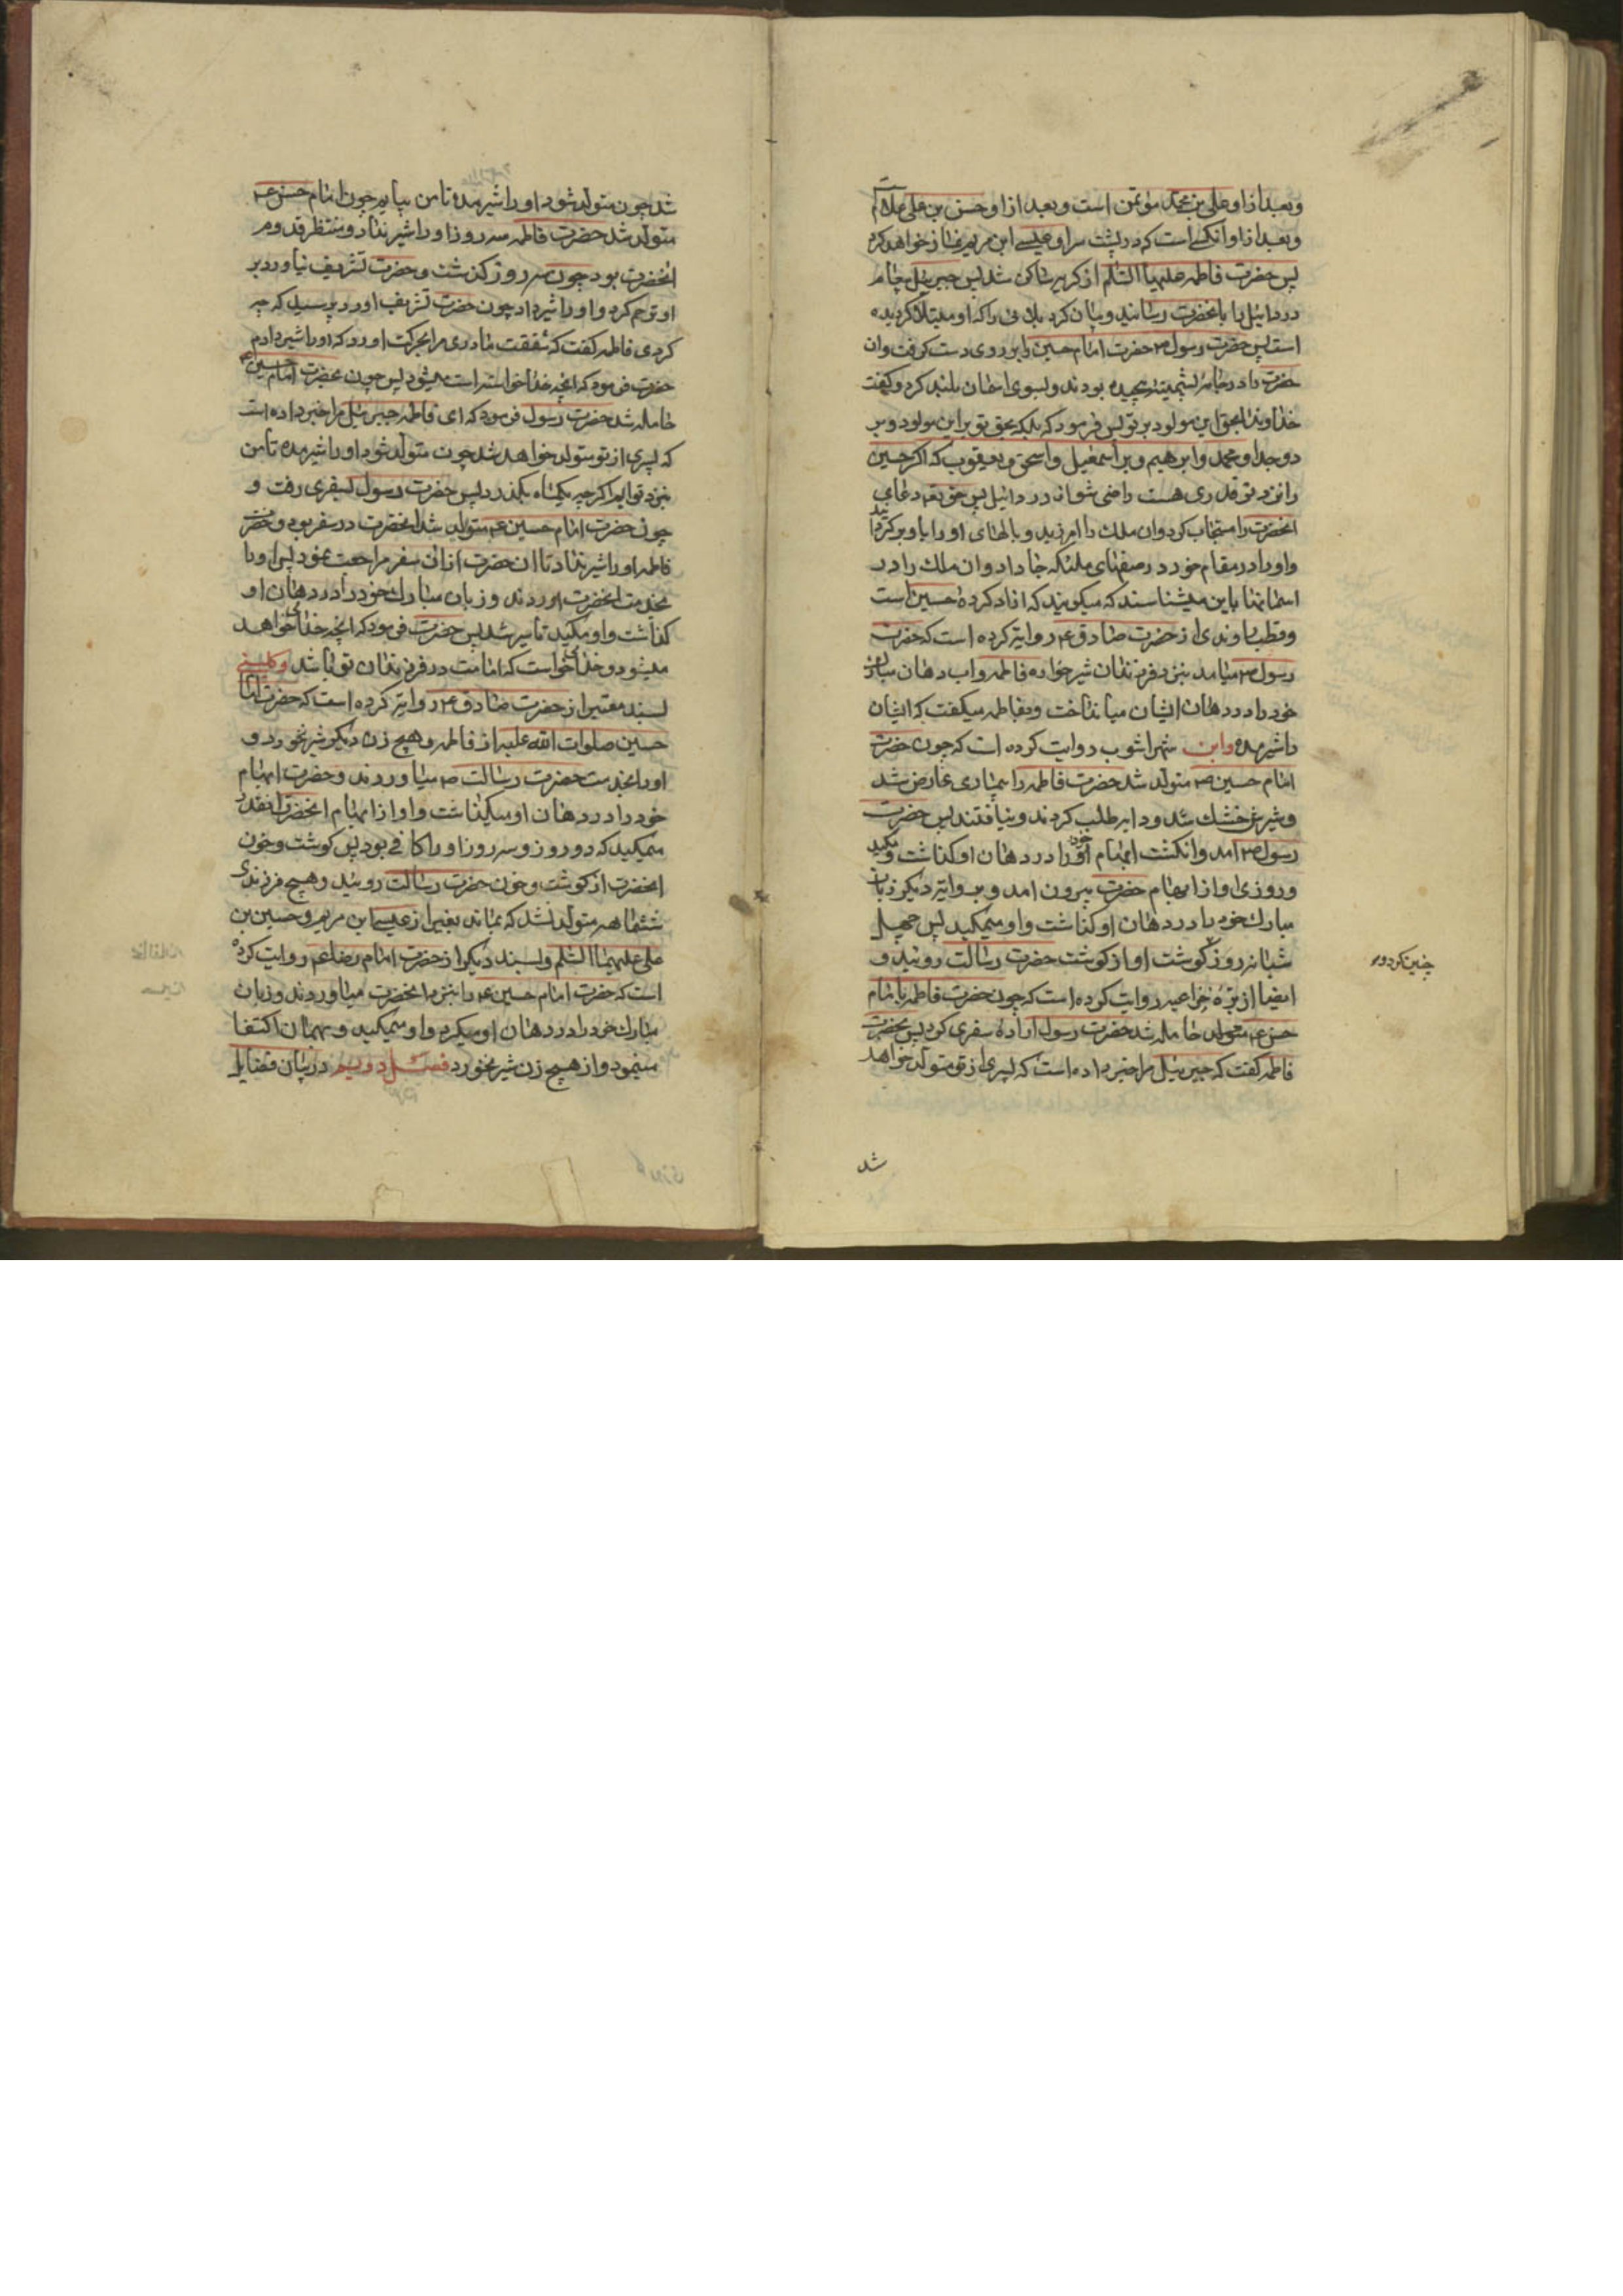 و بعد از او علی بن محمد مؤتمن است و بعد از او حسن بن علی علام
و بعد از او آنکسے است که در پشت سر او عیسے ابن مریم نماز خواهد کرد
پس حضرت فاطمه علیها السلم از کریه ساکن شد پس جبرئیل پیام
دردائیل را بانحضرت رسانید و بیان کرد بلائی را که او مبتلا کردیده
است پس حضرت رسول ص حضرت امام حسین را بر روی دست کرفت و ان
حضرت را در جامه پشمینه پیچیده بودند و بسوی اسمان بلند کرد و کفت
خداوندا بحق این مولود بر تو پس فرمود که بلکه بحق تو بر این مولود و بر
دو جد او محمد و ابرهیم و بر اسمعیل و اسحق و یعقوب که اکر حسین
را نزد تو قدری هست راضی شو از دردائیل پس حقتعم دعای
انحضرت را مستجاب کرد و ان ملك را امرزید و بالهای او را باو برکردانید
و او را در مقام خود در صفهای ملئکه جا داد و ان ملك را در
اسمانها باین میشناسند که میکویند که ازاد کرده حسین است
و قطب راوندی از حضرت صادق ع روایة کرده است که حضرت
رسول ص میامد بنزد فرزندان شیرخواره فاطمه و اب دهان مبارك
خود را در دهان ایشان میانداخت و بفاطمه میکفت که ایشان
را شیر مده و ابن شهراشوب روایت کرده است که چون حضرت
امام حسین ص متولد شد حضرت فاطمه را بیماری عارض شد
و شیرش خشك شد و دایه طلب کردند و نیافتند پس حضرت
رسول ص امد و انکشت ابهام خود را در دهان او کذاشت و مکید
و روزی او از ابهام حضرت بیرون امد و بروایة دیکر زبان
مبارك خود را در دهان او کذاشت و او میمکید پس چهل
شبانه روز کوشت او از کوشت حضرت رسالت روئید و
چنین کردو
ایضا از بره خزاعیه روایت کرده است که چون حضرت فاطمه بامام
حسن ع حامله شد حضرت رسول اراده سفری کرد پس بحضرت
فاطمه کفت که جبرئیل مرا خبر داده است که پسری از تو متولد خواهد
شد
شد چون متولد شود او را شیر مده تا من بیایم چون امام حسن ع
متولد شد حضرت فاطمه سه روز او را شیر نداد و منتظر قدوم
انحضرت بود چون سه روز کذشت و حضرت تشریف نیاورد بر
او ترحم کرد و او را شیر داد چون حضرت تشریف اورد پرسید که چه
کردی فاطمه کفت که شفقت مادری مرا بحرکت اورد که او را شیر دادم
حضرت فرمود که انچه خدا خواسته است میشود پس چون بحضرت امام حسین ع
حامله شد حضرت رسول فرمود که ای فاطمه جبرئیل مرا خبر داده است
که پسری از تو متولد خواهد شد چون متولد شود او را شیر مده تا من
بنزد تو ایم اکر چه یکماه بکذرد پس حضرت رسول بسفری رفت و
چون حضرت امام حسین ع متولد شد انحضرت در سفر بود و حضرت
فاطمه او را شیر نداد تا ان حضرت از ان سفر مراجعت نمود پس او را
بخدمت انحضرت اوردند و زبان مبارك خود را در دهان او
کذاشت و او مکید تا سیر شد پس حضرت فرمود که انچه خدای خواهد
میشود و خدای خواست که امامت در فرزندان تو باشد و کلینے
بسند معتبر از حضرت صادق ع روایة کرده است که حضرت امام
حسین صلوات الله علیه از فاطمه و هیچ زن دیکر شیر نخورد و
او را بخدمت حضرت رسالت ص میاوردند و حضرت ابهام
خود را در دهان او میکذاشت و او از ابهام انحضرت انقدر
میمکید که دو روز و سه روز او را کافی بود پس کوشت و خون
انحضرت از کوشت و خون حضرت رسالت روئید و هیچ فرزندی
ششماهه متولد نشد که بماند بغیر از عیسے ابن مریم و حسین بن
علی علیهما السلم و بسند دیکر از حضرت امام رضا ع روایت کرده
است که حضرت امام حسین ع را بنزد انحضرت میاوردند و زبان
مبارك خود را در دهان او میکرد و او میمکید و بهمان اکتفا
مینمود و از هیچ زن شیر نخورد فصل دویم در بیان فضایل